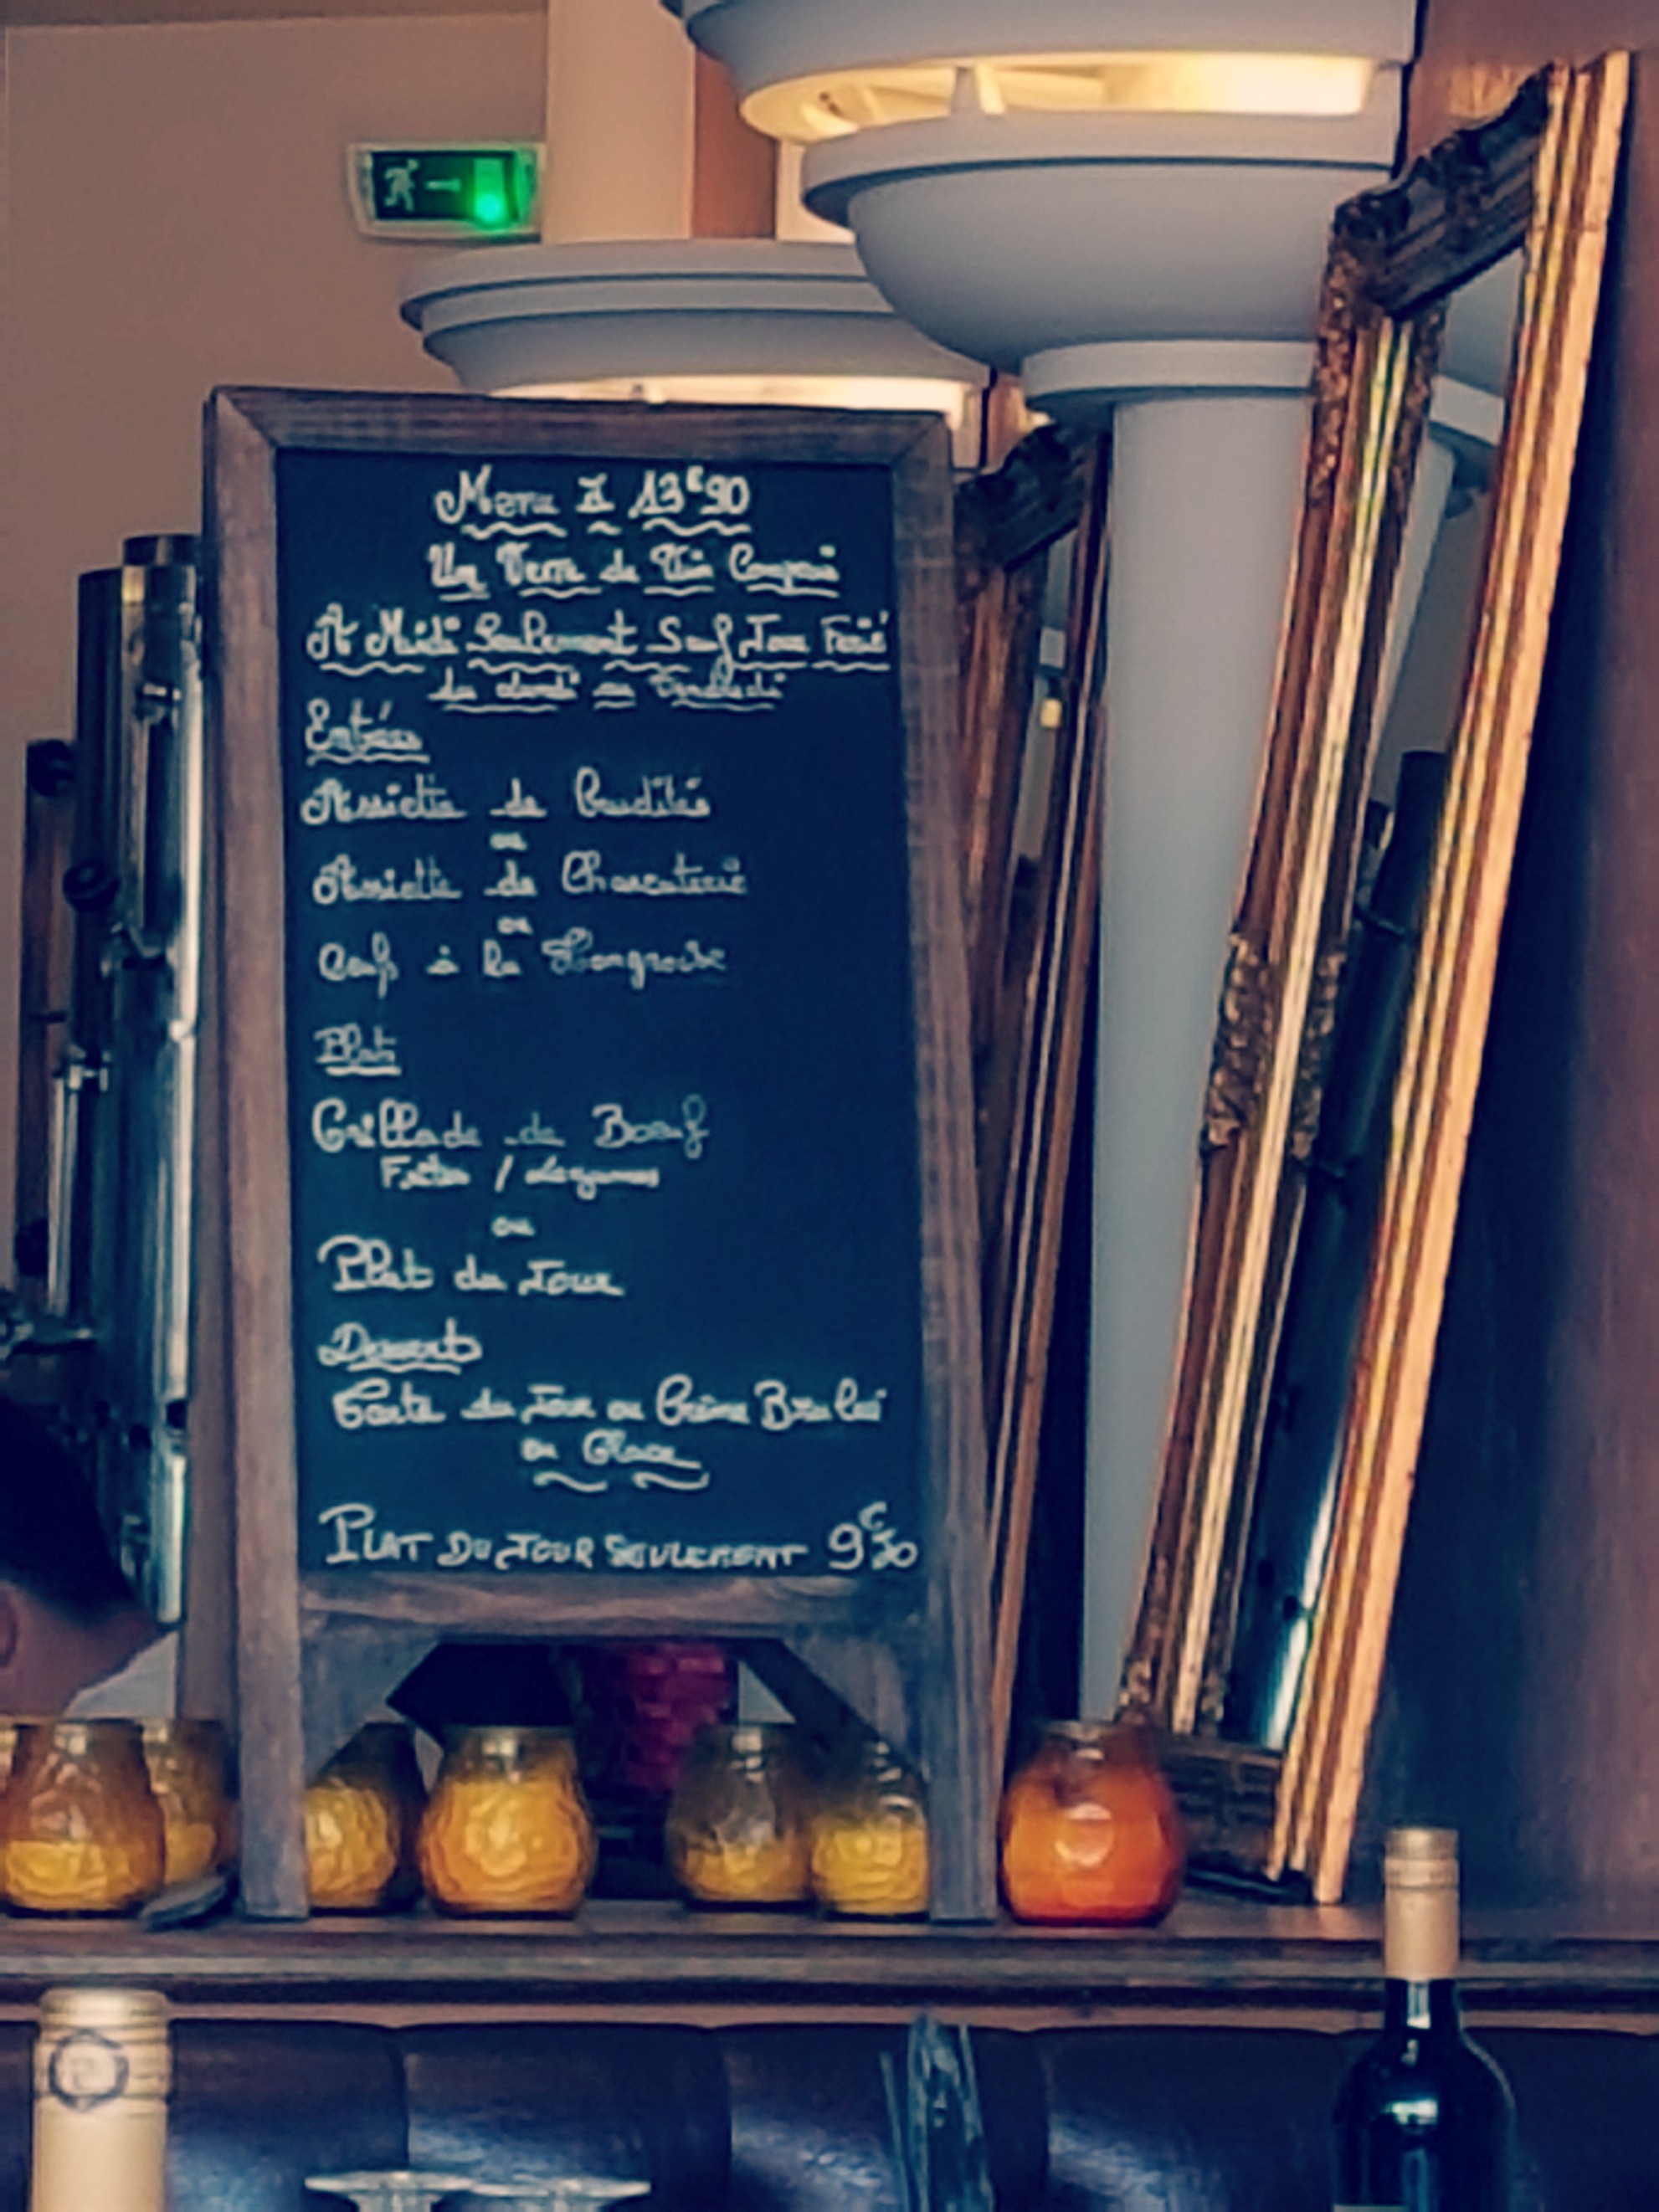 Menu à 13€90
Un Verre de Vin Compris
A Midi Seulement Sauf Jour Ferié
du Lundi au Vendredi
Entrées
Assiette de Crudités
ou
Assiette de Charcuterie
ou
Oeufs à la Hongroise
Plat
Grillade de Boeuf
Frites / Legumes
ou
Plat du Jour
Desserts
Tarte du Jour ou Crème Brulei
ou Glace
PLAT DU JOUR SEULEMENT 9€